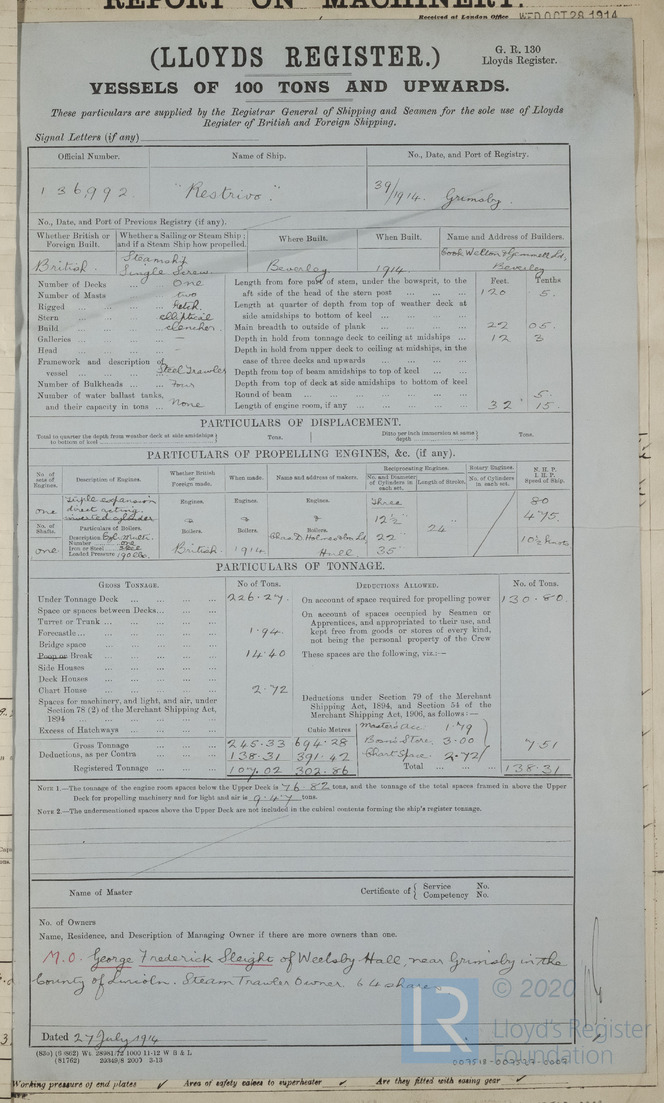 REPORT ON MACHINERY.
Received at London Office WED OCT 28 1914
(LLOYDS REGISTER.)
G. R. 130
Lloyds Register.
VESSELS OF 100 TONS AND UPWARDS.
These particulars are supplied by the Registrar General of Shipping and Seamen for the sole use of Lloyds
Register of British and Foreign Shipping.
Signal Letters (if any)
Official Number. Name of Ship. No., Date, and Port of Registry.
136,992 "Restrivo." 39/1914. Grimsby.
No., Date, and Port of Previous Registry (if any).
Whether British or Foreign Built. Whether a Sailing or Steam Ship; and if a Steam Ship how propelled. Where Built. When Built. Name and Address of Builders.
British. Steamship Single Screw. Beverley 1914. Cook Welton & Gemmell Ld, Beverley
Feet. Tenths
Number of Decks ... One
Number of Masts ... two
Rigged ... Ketch.
Stern ... elliptical
Build ... clencher.
Galleries ... —
Head ... —
Framework and description of vessel ... Steel Trawler
Number of Bulkheads ... Four
Number of water ballast tanks, and their capacity in tons ... None
Length from fore part of stem, under the bowsprit, to the aft side of the head of the stern post 120 5.
Length at quarter of depth from top of weather deck at side amidships to bottom of keel
Main breadth to outside of plank 22 05.
Depth in hold from tonnage deck to ceiling at midships 12 3
Depth in hold from upper deck to ceiling at midships, in the case of three decks and upwards
Depth from top of beam amidships to top of keel
Depth from top of deck at side amidships to bottom of keel
Round of beam 5.
Length of engine room, if any 32 15.
PARTICULARS OF DISPLACEMENT.
Total to quarter the depth from weather deck at side amidships to bottom of keel Tons. Ditto per inch immersion at same depth Tons.
PARTICULARS OF PROPELLING ENGINES, &c. (if any).
No. of sets of Engines. Description of Engines. Whether British or Foreign made. When made. Name and address of makers. Reciprocating Engines. Rotary Engines. N. H. P. I. H. P. Speed of Ship.
No. and Diameter of Cylinders in each set. Length of Stroke. No. of Cylinders in each set.
one Triple expansion direct acting. inverted cylinder Engines. Engines. Engines. Three 80
12½" 24" 475.
No. of Shafts. Particulars of Boilers. Boilers. Boilers. Boilers.
one Description Cyl. Mult. Number one Iron or Steel Steel Loaded Pressure 190 lbs. British. 1914. Chas D. Holmes & Co Ld Hull 22" 35" 10½ knots
PARTICULARS OF TONNAGE.
GROSS TONNAGE. No of Tons. DEDUCTIONS ALLOWED. No. of Tons.
Under Tonnage Deck 226.27.
Space or spaces between Decks
Turret or Trunk
Forecastle 1.94.
Bridge space
Poop or Break 14.40
Side Houses
Deck Houses
Chart House 2.72
Spaces for machinery, and light, and air, under Section 78 (2) of the Merchant Shipping Act, 1894
Excess of Hatchways Cubic Metres
Gross Tonnage 245.33 694.28
Deductions, as per Contra 138.31 391.42
Registered Tonnage 107.02 302.86
On account of space required for propelling power 130.80.
On account of spaces occupied by Seamen or Apprentices, and appropriated to their use, and kept free from goods or stores of every kind, not being the personal property of the Crew
These spaces are the following, viz.:—
Deductions under Section 79 of the Merchant Shipping Act, 1894, and Section 54 of the Merchant Shipping Act, 1906, as follows:—
Master's Acc. 1.79
Bosn's Store. 3.00
Chart Space. 2.72 7.51
Total 138.31
NOTE 1.—The tonnage of the engine room spaces below the Upper Deck is 76.82 tons, and the tonnage of the total spaces framed in above the Upper
Deck for propelling machinery and for light and air is 9.47 tons.
NOTE 2.—The undermentioned spaces above the Upper Deck are not included in the cubical contents forming the ship's register tonnage.
Name of Master Certificate of { Service No. Competency No.
No. of Owners
Name, Residence, and Description of Managing Owner if there are more owners than one.
M.O. George Frederick Sleight of Weelsby Hall, near Grimsby in the
County of Lincoln. Steam Trawler Owner. 64 shares
Dated 27 July 1914
(83o) (6 862) Wt. 28981/72 1000 11-12 W B & L
(81762) 20349/8 2000 3-13
© 2020
LR
Lloyd's Register
Foundation
007518-007527-0007
Working pressure of end plates Area of safety valves to superheater Are they fitted with easing gear